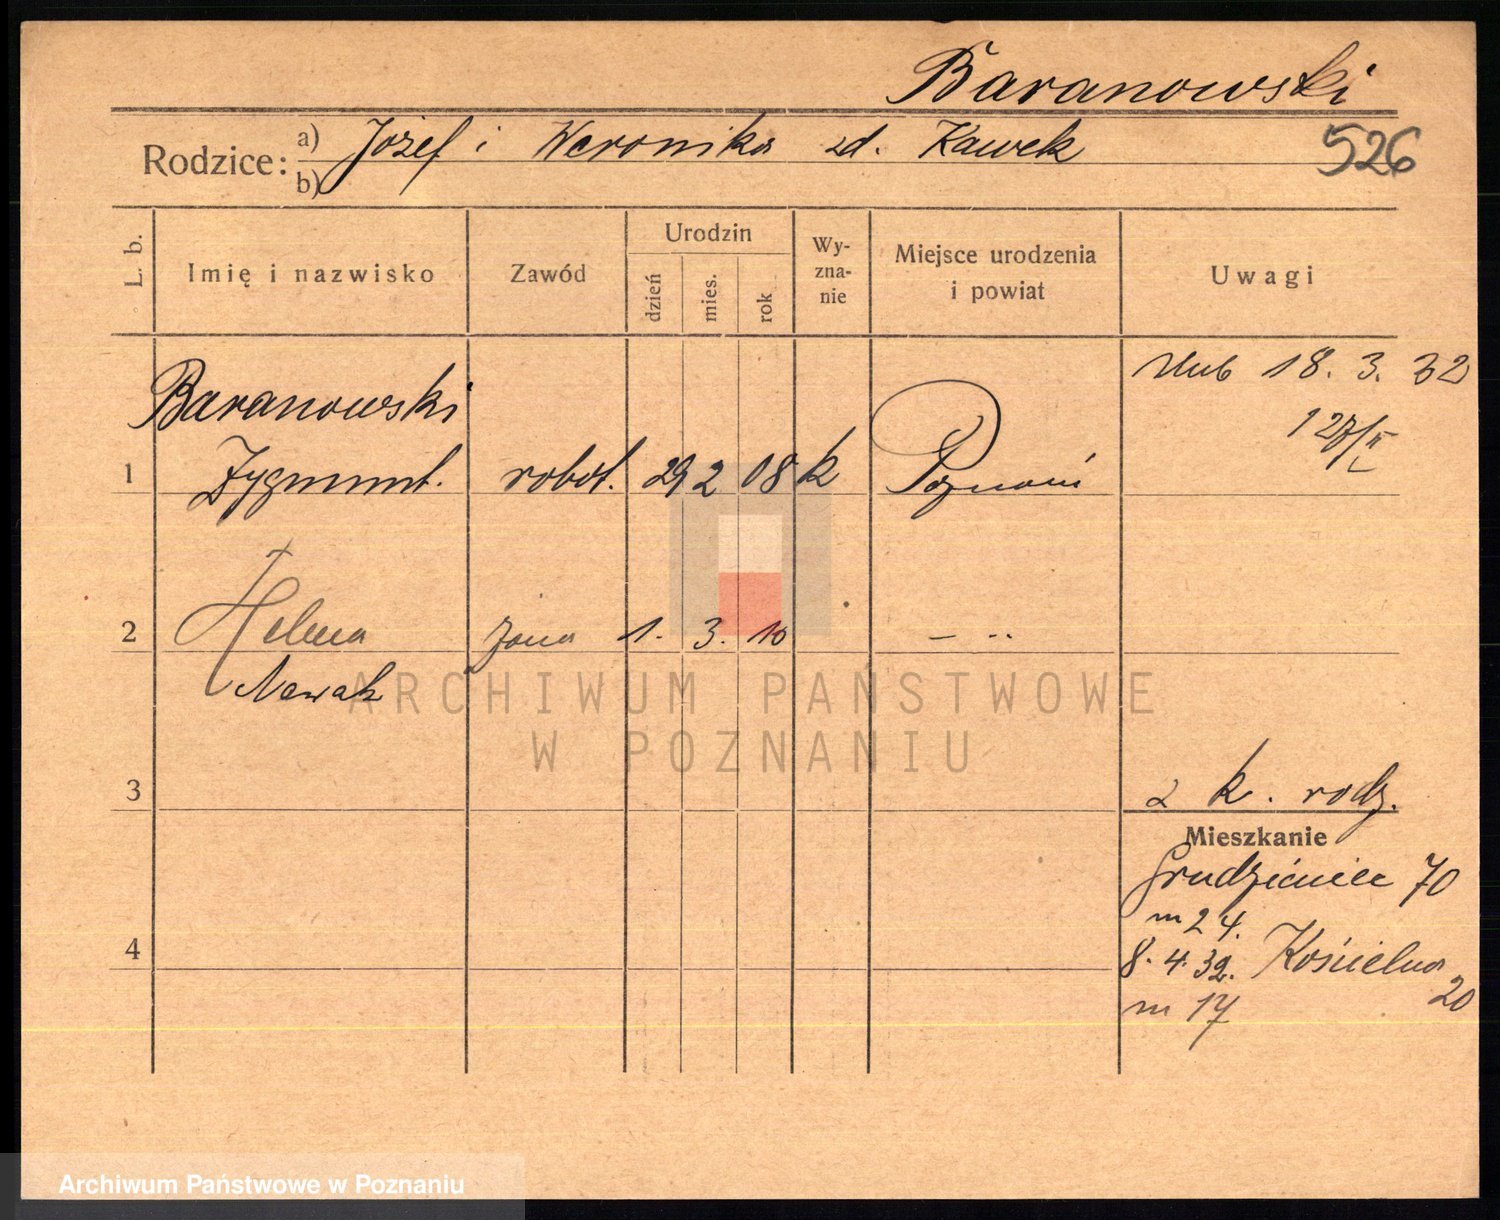 Baranowski
Rodzice: a) Józef i Weronika zd. Kawek
b)
526
L. b. Imię i nazwisko Zawód Urodzin dzień mies. rok Wyznanie Miejsce urodzenia i powiat Uwagi
ślub 18. 3. 32
Baranowski
1 Zygmunt. robot. 29 2 08 k Poznań
2 Helena żona 1. 3. 10 — ··
Nowak
3
z k. rodz.
Mieszkanie
Grudzieniec 70
m 24.
4
8. 4. 32. Kościelna 20
m 17
ARCHIWUM PAŃSTWOWE
W POZNANIU
Archiwum Państwowe w Poznaniu